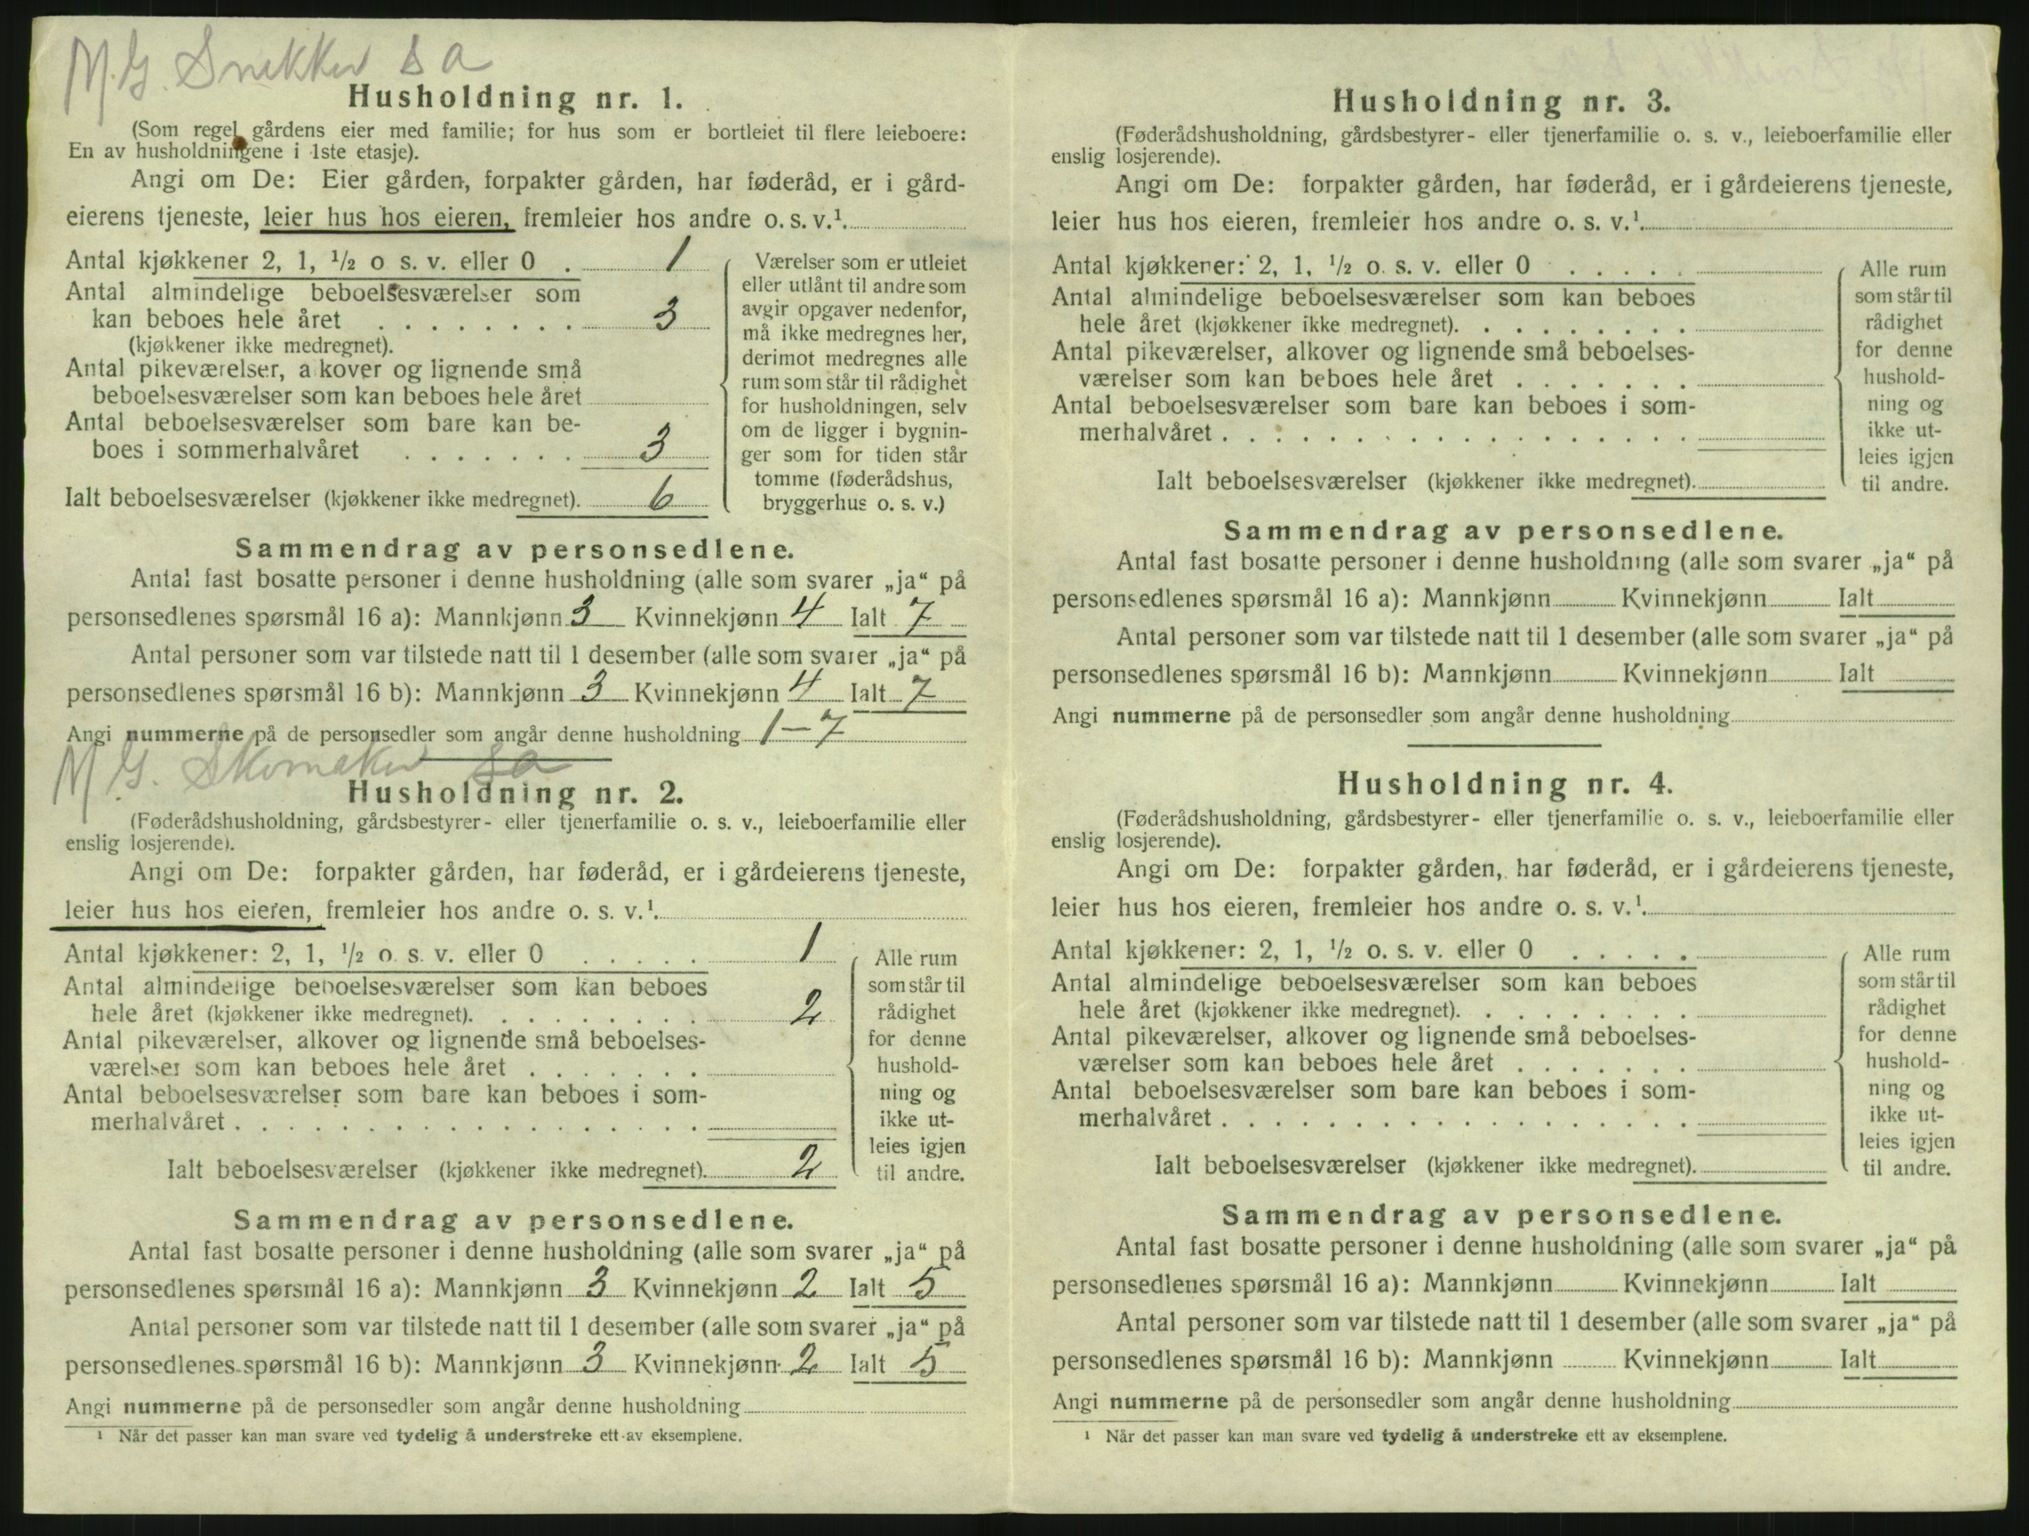 M.G. Snekker s a
Husholdning nr. 1.
(Som regel gårdens eier med familie; for hus som er bortleiet til flere leieboere:
En av husholdningene i 1ste etasje).
Angi om De: Eier gården, forpakter gården, har føderåd, er i gård-
eierens tjeneste, leier hus hos eieren, fremleier hos andre o. s. v.¹
Antal kjøkkener 2, 1, ½ o s. v. eller 0 . 1
Antal almindelige beboelsesværelser som
kan beboes hele året . . . . . . . . 3
(kjøkkener ikke medregnet).
Antal pikeværelser, a kover og lignende små
beboelsesværelser som kan beboes hele året
Antal beboelsesværelser som bare kan be-
boes i sommerhalvåret . . . . . . . 3
Ialt beboelsesværelser (kjøkkener ikke medregnet). 6
Værelser som er utleiet
eller utlånt til andre som
avgir opgaver nedenfor,
må ikke medregnes her,
derimot medregnes alle
rum som står til rådighet
for husholdningen, selv
om de ligger i bygnin-
ger som for tiden står
tomme (føderådshus,
bryggerhus o. s. v.)
Sammendrag av personsedlene.
Antal fast bosatte personer i denne husholdning (alle som svarer „ja“ på
personsedlenes spørsmål 16 a): Mannkjønn 3 Kvinnekjønn 4 Ialt 7
Antal personer som var tilstede natt til 1 desember (alle som svarer „ja“ på
personsedlenes spørsmål 16 b): Mannkjønn 3 Kvinnekjønn 4 Ialt 7
Angi nummerne på de personsedler som angår denne husholdning 1–7
M.G. Skomaker s a
Husholdning nr. 2.
(Føderådshusholdning, gårdsbestyrer- eller tjenerfamilie o. s. v., leieboerfamilie eller
enslig losjerende).
Angi om De: forpakter gården, har føderåd, er i gårdeierens tjeneste,
leier hus hos eieren, fremleier hos andre o. s. v.¹
Antal kjøkkener: 2, 1, ½ o. s. v. eller 0 . . . . . 1
Antal almindelige beboelsesværelser som kan beboes
hele året (kjøkkener ikke medregnet). . . . . . . . . 2
Antal pikeværelser, alkover og lignende små beboelses-
værelser som kan beboes hele året . . . . . . .
Antal beboelsesværelser som bare kan beboes i som-
merhalvåret . . . . . . . . . . . . . . . . . .
Ialt beboelsesværelser (kjøkkener ikke medregnet). 2
Alle rum
som står til
rådighet
for denne
hushold-
ning og
ikke ut-
leies igjen
til andre.
Sammendrag av personsedlene.
Antal fast bosatte personer i denne husholdning (alle som svarer „ja“ på
personsedlenes spørsmål 16 a): Mannkjønn 3 Kvinnekjønn 2 Ialt 5
Antal personer som var tilstede natt til 1 desember (alle som svarer „ja“ på
personsedlenes spørsmål 16 b): Mannkjønn 3 Kvinnekjønn 2 Ialt 5
Angi nummerne på de personsedler som angår denne husholdning
¹ Når det passer kan man svare ved tydelig å understreke ett av eksemplene.
Husholdning nr. 3.
(Føderådshusholdning, gårdsbestyrer- eller tjenerfamilie o. s. v., leieboerfamilie eller
enslig losjerende).
Angi om De: forpakter gården, har føderåd, er i gårdeierens tjeneste,
leier hus hos eieren, fremleier hos andre o. s. v.¹
Antal kjøkkener: 2, 1, ½ o. s. v. eller 0 . . . . .
Antal almindelige beboelsesværelser som kan beboes
hele året (kjøkkener ikke medregnet). . . . . . . . .
Antal pikeværelser, alkover og lignende små beboelses-
værelser som kan beboes hele året . . . . . . .
Antal beboelsesværelser som bare kan beboes i som-
merhalvåret . . . . . . . . . . . . . . . . . .
Ialt beboelsesværelser (kjøkkener ikke medregnet).
Alle rum
som står til
rådighet
for denne
hushold-
ning og
ikke ut-
leies igjen
til andre.
Sammendrag av personsedlene.
Antal fast bosatte personer i denne husholdning (alle som svarer „ja“ på
personsedlenes spørsmål 16 a): Mannkjønn Kvinnekjønn Ialt
Antal personer som var tilstede natt til 1 desember (alle som svarer „ja“ på
personsedlenes spørsmål 16 b): Mannkjønn Kvinnekjønn Ialt
Angi nummerne på de personsedler som angår denne husholdning
Husholdning nr. 4.
(Føderådshusholdning, gårdsbestyrer- eller tjenerfamilie o. s. v., leieboerfamilie eller
enslig losjerende).
Angi om De: forpakter gården, har føderåd, er i gårdeierens tjeneste,
leier hus hos eieren, fremleier hos andre o. s. v.¹
Antal kjøkkener: 2, 1, ½ o. s. v. eller 0 . . . . .
Antal almindelige beboelsesværelser som kan beboes
hele året (kjøkkener ikke medregnet). . . . . . . . .
Antal pikeværelser, alkover og lignende små beboelses-
værelser som kan beboes hele året . . . . . . .
Antal beboelsesværelser som bare kan beboes i som-
merhalvåret . . . . . . . . . . . . . . . . . .
Ialt beboelsesværelser (kjøkkener ikke medregnet).
Alle rum
som står til
rådighet
for denne
hushold-
ning og
ikke ut-
leies igjen
til andre.
Sammendrag av personsedlene.
Antal fast bosatte personer i denne husholdning (alle som svarer „ja“ på
personsedlenes spørsmål 16 a): Mannkjønn Kvinnekjønn Ialt
Antal personer som var tilstede natt til 1 desember (alle som svarer „ja“ på
personsedlenes spørsmål 16 b): Mannkjønn Kvinnekjønn Ialt
Angi nummerne på de personsedler som angår denne husholdning
¹ Når det passer kan man svare ved tydelig å understreke ett av eksemplene.